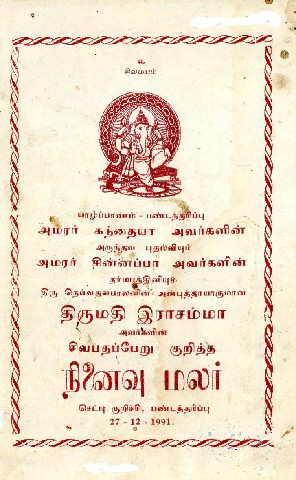 உ
சிவமயம்
யாழ்ப்பாணம் - பண்டத்தரிப்பு
அமரர் கந்தையா அவர்களின்
அருந்தவ புதல்வியும்
அமரர் சின்னப்பா அவர்களின்
தர்மபத்தினியும்
திரு தெய்வதவபாலனின் அன்புத்தாயாருமான
திருமதி இராசம்மா
அவர்களின்
சிவபதப்பேறு குறித்த
நினைவு மலர்
செட்டி குறிச்சி, பண்டத்தரிப்பு
27 - 12 - 1991.